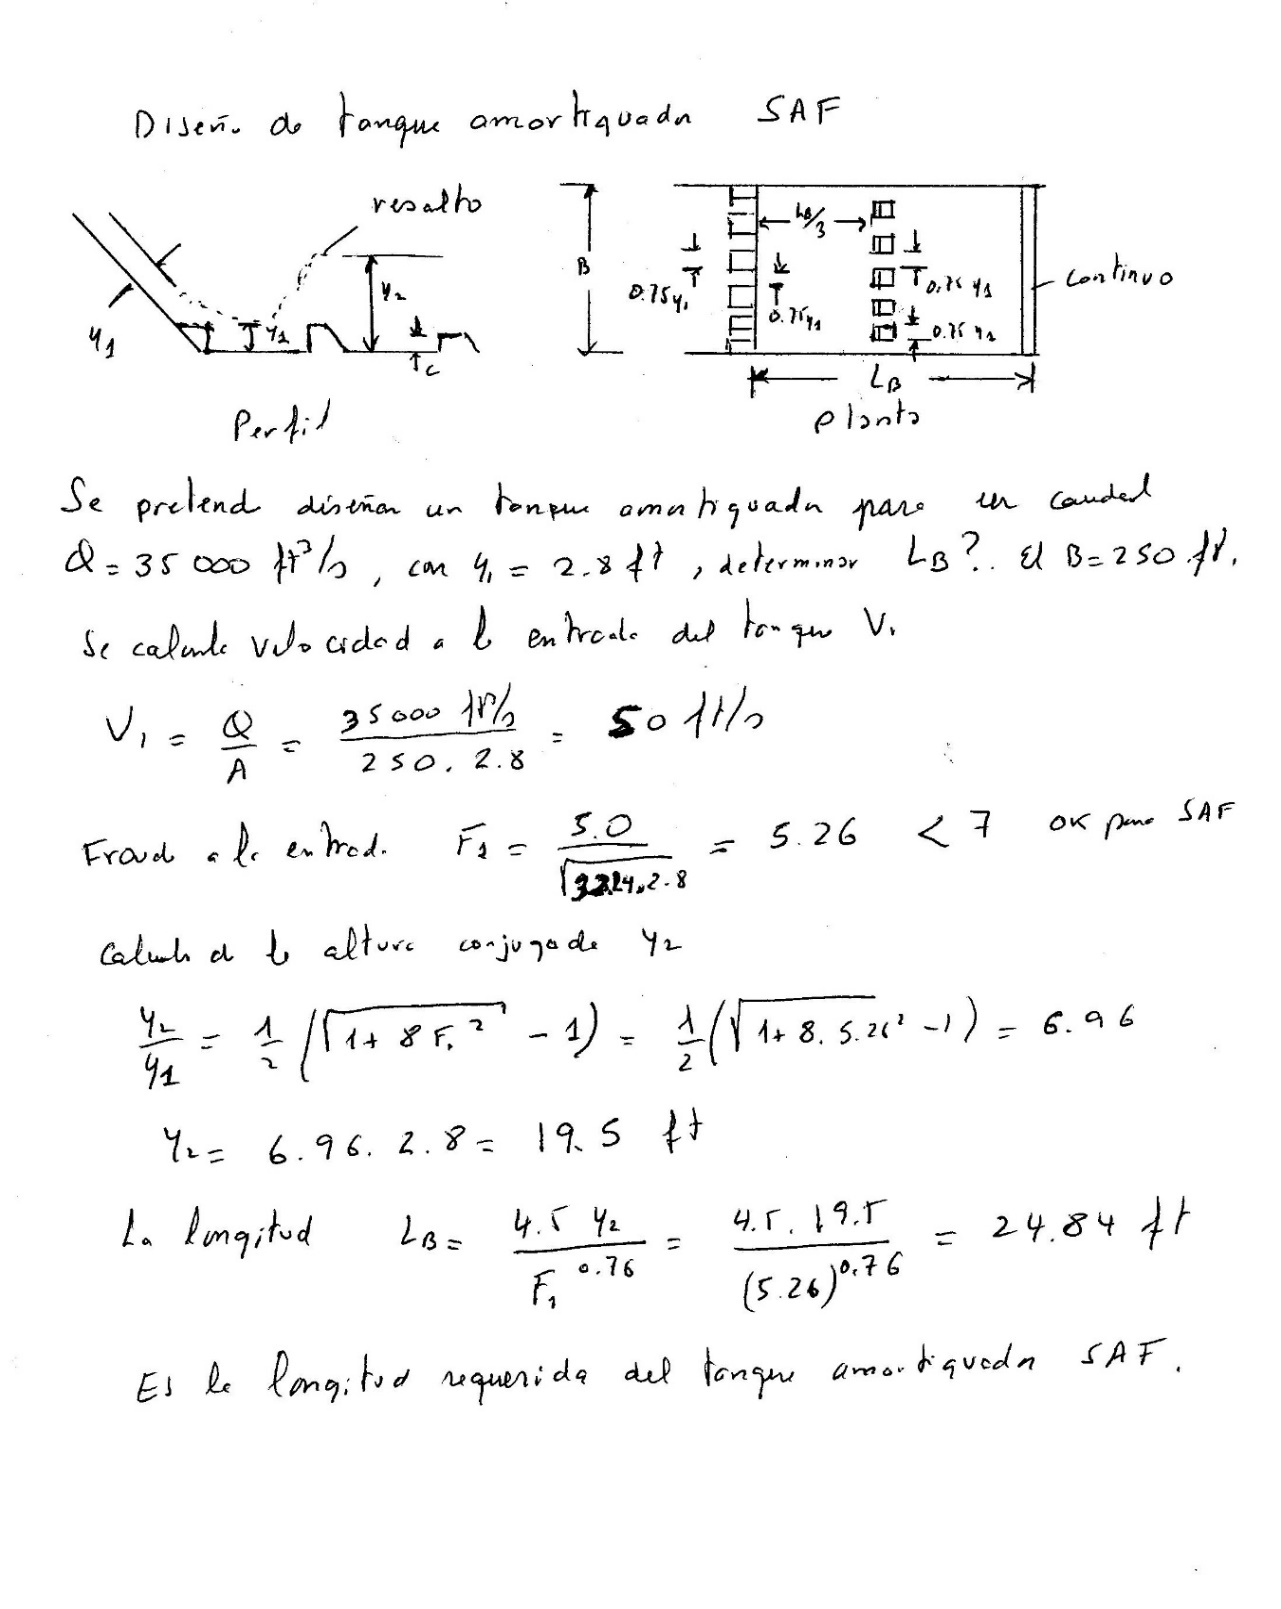 Diseño de tanque amortiguador SAF
resalto
y1
y1
y2
c
Perfil
B
0.75y1
0.75y1
LB/3
0.75 y1
0.75 y1
continuo
LB
Planta
Se pretende diseñar un tanque amortiguador para un caudal
Q = 35 000 ft³/s, con y1 = 2.8 ft, determinar LB?. El B=250 ft.
Se calcula velocidad a la entrada del tanque V1
V1 = Q/A = 35000 ft³/s / 250 . 2.8 = 50 ft/s
Froud a la entrad. F1 = 5.0 / √32.24.2.8 = 5.26 < 7 OK para SAF
Calculo de la altura conjugada y2
y2/y1 = 1/2 (√1+8F1² - 1) = 1/2 (√1+8.5.26² - 1) = 6.96
y2 = 6.96 . 2.8 = 19.5 ft
La longitud LB = 4.5 y2 / F1^0.76 = 4.5 . 19.5 / (5.26)^0.76 = 24.84 ft
Es la longitud requerida del tanque amortiguador SAF.